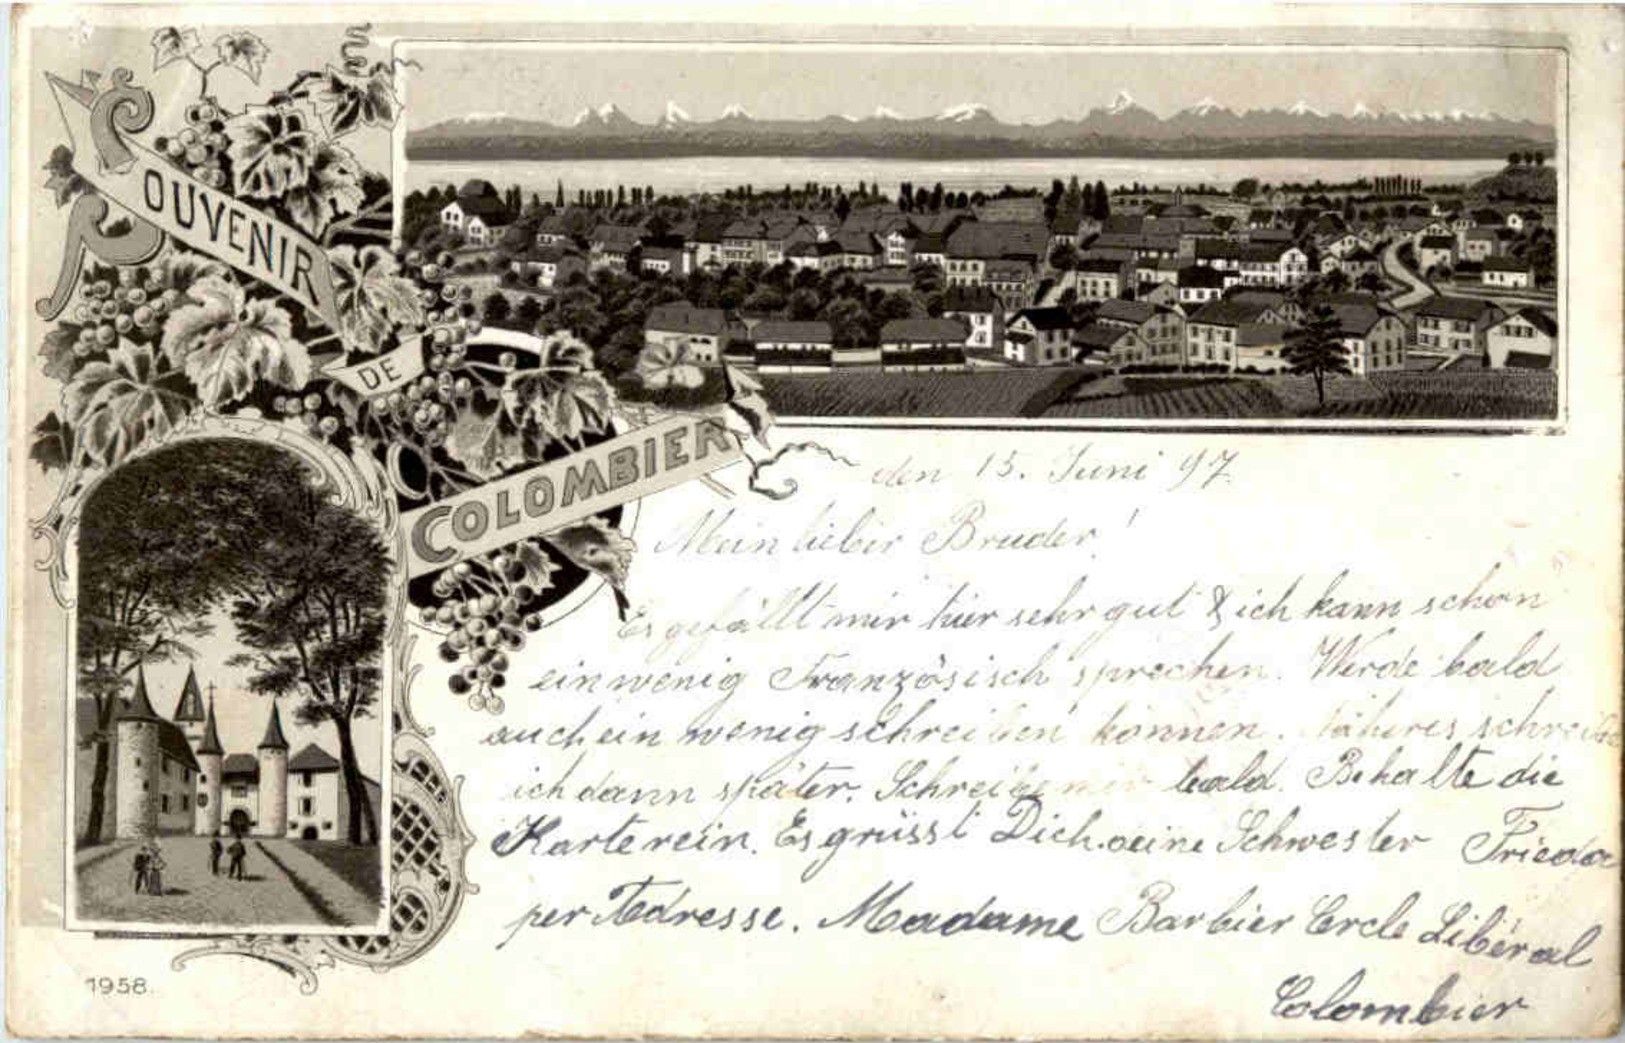 SOUVENIR
DE
COLOMBIER
den 15. Juni 97.
Mein lieber Bruder!
Es gefällt mir hier sehr gut & ich kann schon
ein wenig Französisch sprechen. Werde bald
auch ein wenig schreiben können. Näheres schreibe
ich dann später. Schreibe mir bald. Behalte die
Karte rein. Es grüsst Dich deine Schwester Frieda
per Adresse. Madame Barbier Cercle Libéral
Colombier
1958.